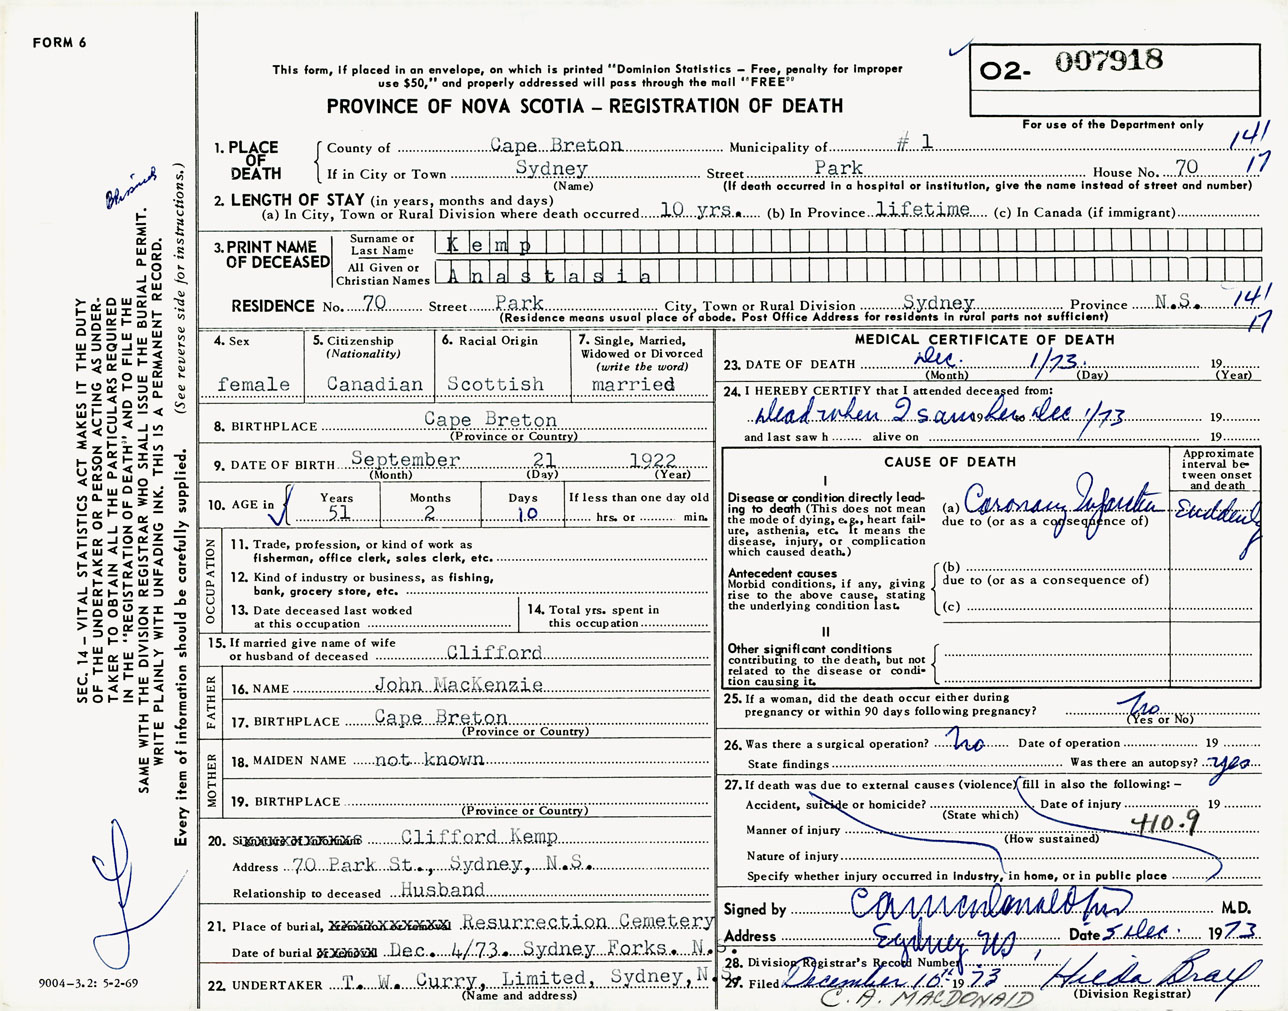 FORM 6
This form, if placed in an envelope, on which is printed "Dominion Statistics – Free, penalty for improper
use $50," and properly addressed will pass through the mail "FREE"
PROVINCE OF NOVA SCOTIA – REGISTRATION OF DEATH
02- 007918
For use of the Department only
1. PLACE OF DEATH County of Cape Breton Municipality of #1 141
If in City or Town Sydney Street Park House No. 70 17
(Name) (If death occurred in a hospital or institution, give the name instead of street and number)
2. LENGTH OF STAY (in years, months and days)
(a) In City, Town or Rural Division where death occurred 10 yrs. (b) In Province lifetime (c) In Canada (if immigrant)
3. PRINT NAME OF DECEASED Surname or Last Name Kemp
All Given or Christian Names Anastasia
RESIDENCE No. 70 Street Park City, Town or Rural Division Sydney Province N.S. 141
(Residence means usual place of abode. Post Office Address for residents in rural parts not sufficient) 17
4. Sex
female
5. Citizenship
(Nationality)
Canadian
6. Racial Origin
Scottish
7. Single, Married,
Widowed or Divorced
(write the word)
married
8. BIRTHPLACE Cape Breton
(Province or Country)
9. DATE OF BIRTH September 21 1922
(Month) (Day) (Year)
10. AGE in Years Months Days If less than one day old
51 2 10 hrs. or min.
OCCUPATION
11. Trade, profession, or kind of work as
fisherman, office clerk, sales clerk, etc.
12. Kind of industry or business, as fishing,
bank, grocery store, etc.
13. Date deceased last worked
at this occupation
14. Total yrs. spent in
this occupation
15. If married give name of wife
or husband of deceased Clifford
FATHER
16. NAME John MacKenzie
17. BIRTHPLACE Cape Breton
(Province or Country)
MOTHER
18. MAIDEN NAME not known
19. BIRTHPLACE
(Province or Country)
20. Signature of Informant Clifford Kemp
Address 70 Park St., Sydney, N.S.
Relationship to deceased Husband
21. Place of burial, Resurrection Cemetery
Date of burial Dec. 4/73. Sydney Forks. N.S.
22. UNDERTAKER T. W. Curry, Limited, Sydney, N.S.
(Name and address)
MEDICAL CERTIFICATE OF DEATH
23. DATE OF DEATH Dec. 1/73. 19
(Month) (Day) (Year)
24. I HEREBY CERTIFY that I attended deceased from:
Dead when I saw her Dec 1/73 19
and last saw h alive on 19
CAUSE OF DEATH
Approximate
interval be-
tween onset
and death
I
Disease or condition directly lead-
ing to death (This does not mean
the mode of dying, e.g., heart fail-
ure, asthenia, etc. It means the
disease, injury, or complication
which caused death.)
(a) Coronary Infarction Suddenly
due to (or as a consequence of)
Antecedent causes
Morbid conditions, if any, giving
rise to the above cause, stating
the underlying condition last.
(b)
due to (or as a consequence of)
(c)
II
Other significant conditions
contributing to the death, but not
related to the disease or condi-
tion causing it.
25. If a woman, did the death occur either during
pregnancy or within 90 days following pregnancy? No
(Yes or No)
26. Was there a surgical operation? No Date of operation 19
State findings Was there an autopsy? yes
27. If death was due to external causes (violence) fill in also the following: –
Accident, suicide or homicide? Date of injury 19
(State which)
Manner of injury 410.9
(How sustained)
Nature of injury
Specify whether injury occurred in Industry, in home, or in public place
Signed by M.D.
Address Sydney NS Date 5 Dec. 1973
28. Division Registrar's Record Number
29. Filed December 10th 1973 Hilda Bray
C. A. MACDONALD (Division Registrar)
SEC. 14 – VITAL STATISTICS ACT MAKES IT THE DUTY
OF THE UNDERTAKER OR PERSON ACTING AS UNDER-
TAKER TO OBTAIN ALL THE PARTICULARS REQUIRED
IN THE "REGISTRATION OF DEATH" AND TO FILE THE
SAME WITH THE DIVISION REGISTRAR WHO SHALL ISSUE THE BURIAL PERMIT.
WRITE PLAINLY WITH UNFADING INK. THIS IS A PERMANENT RECORD.
Every item of information should be carefully supplied. (See reverse side for instructions.)
9004-3.2: 5-2-69